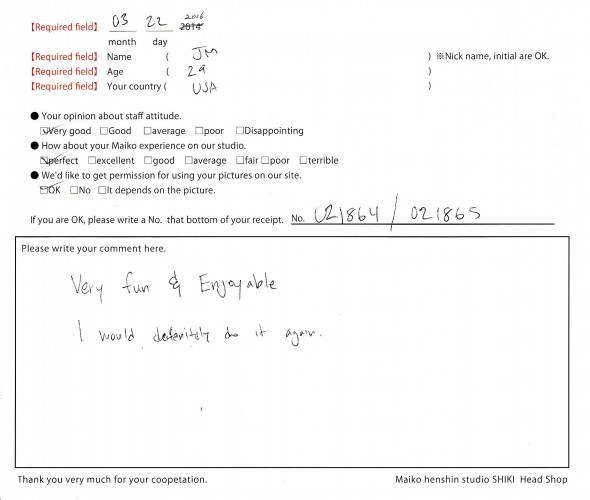 2016
【Required field】 03 22 2014
month day
【Required field】 Name ( JM ) ※Nick name, initial are OK.
【Required field】 Age ( 29 )
【Required field】 Your country ( USA )
● Your opinion about staff attitude.
☑Very good □Good □average □poor □Disappointing
● How about your Maiko experience on our studio.
☑perfect □excellent □good □average □fair □poor □terrible
● We'd like to get permission for using your pictures on our site.
☑OK □No □It depends on the picture.
If you are OK, please write a No. that bottom of your receipt. No. 021864 / 021865
Please write your comment here.
Very fun & Enjoyable
I would definitely do it again.
Thank you very much for your coopetation. Maiko henshin studio SHIKI Head Shop